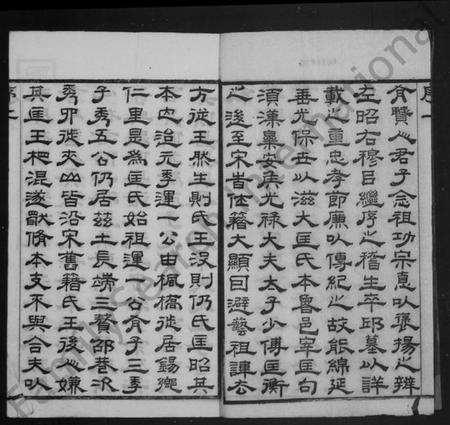 序一
食贤之君子念祖功宗惪以褒揚之辨
左昭右穆㠯繼序之稽生卒邱墓以詳
載之重忠孝節廉以傳紀之故能綿延
垂光保世以滋大匡氏本魯邑宰匡句
須漢樂安矦光祿大夫太子少傅匡衡
之後至宋
籍大顯回避藝祖諱去
方從王然生則氏王沒則仍氏匡昭其
本也治元季運一公由楓橋徙居錫鄉
仁里是為匡氏始祖運一公有子三季
子秀五公仍居茲土長端三贅邵巷次
秀卯徙夾山皆沿宋舊籍氏王後之嫌
其匡王杷混遂歐脩本支不與合夫以
序二
Family Search International